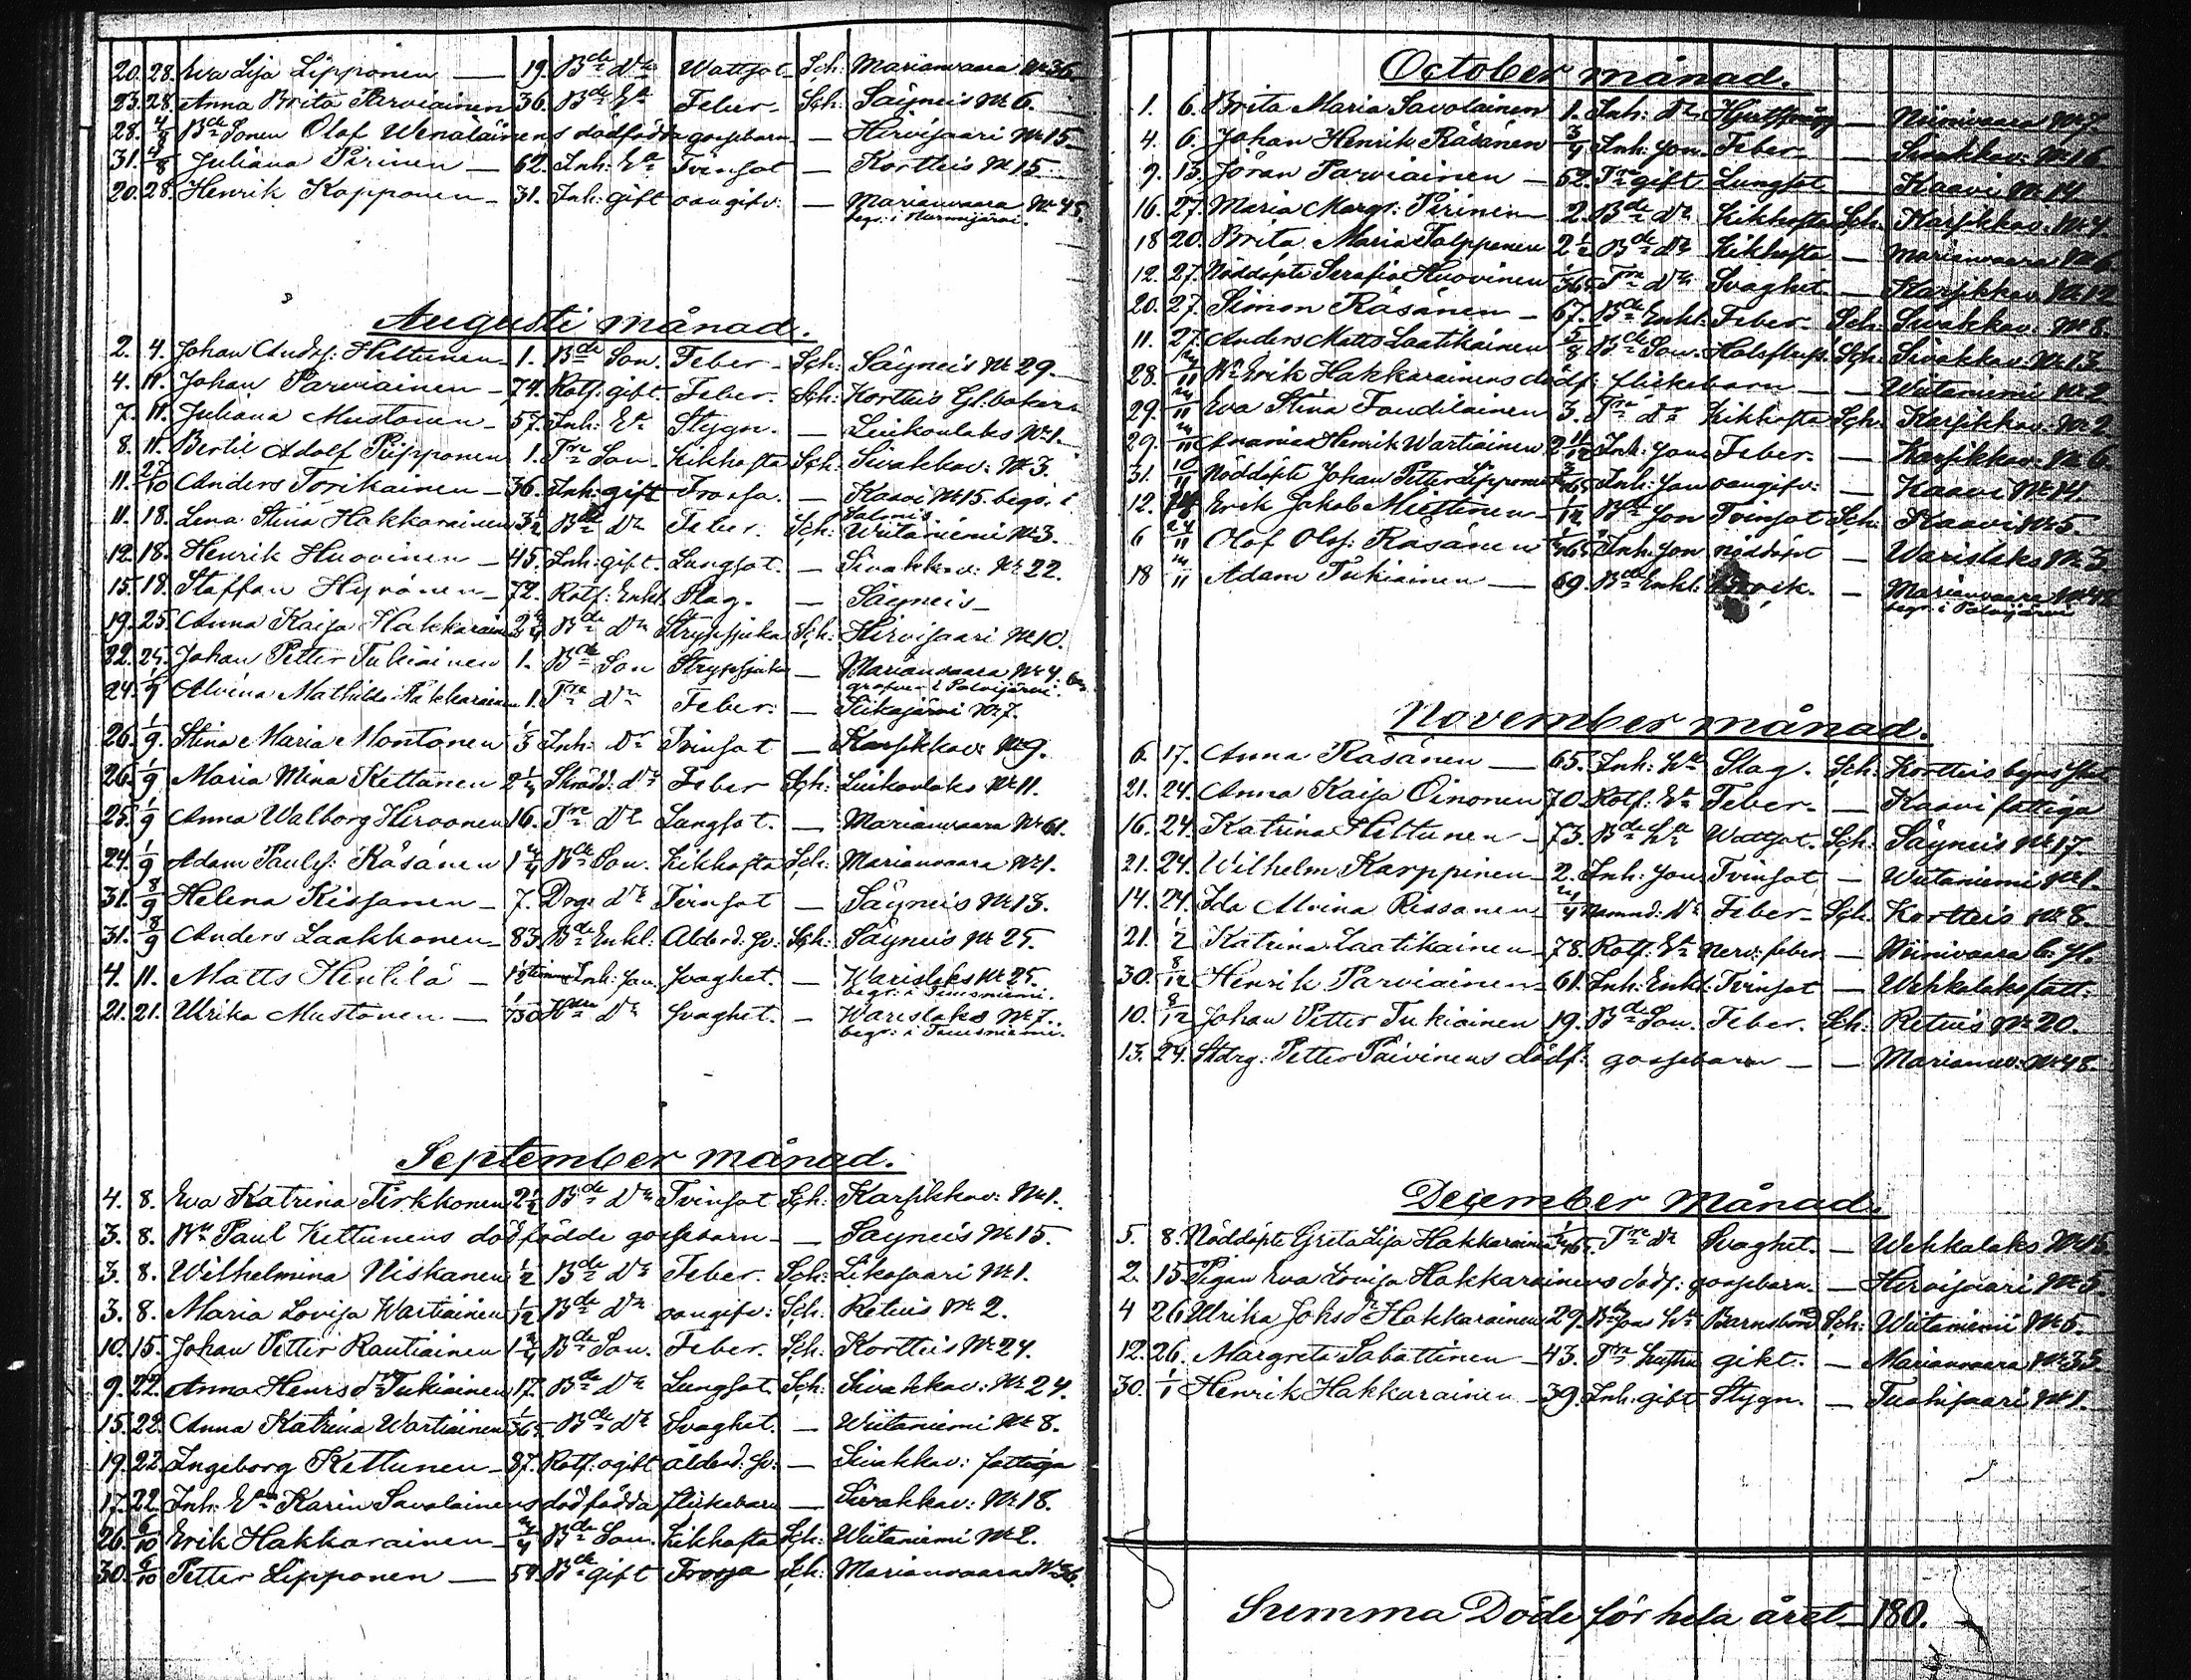 20. 28. Eva Lisa Lipponen — 19. Bde Dr Wattsot Sch: Marianvaara № 36.
23. 28. Anna Brita Parviainen 36. Bde Ea Feber Sch: Säyneis № 6.
28. 4/8 Bde Sonen Olof Wenäläinens dödfödda gossebarn — Hirvisaari № 15.
31. 4/8 Juliana Pirinen — 62. Inh: Ea Tvinsot — Kortteis № 15.
20. 28. Henrik Kopponen — 31. Inh: gift oangifv: — Marianvaara № 45.
begr. i Nurmijärvi.
Augusti månad.
2. 4. Johan Andrs: Hiltunen 1. Bde Son. Feber Sch: Säyneis № 29.
4. 11. Johan Parviainen — 74. Rotf: gift. Feber. Sch: Kortteis Gl: bakars
7. 11. Juliana Mustonen — 57. Inh: Ea Stygn. — Luikonlaks № 1.
8. 11. Bertil Adolf Piipponen 1. Tre Son Kikhosta Sch: Sivakkav: № 3.
11. 27/10 Anders Torikainen — 36. Inh: gift Frossa. — Kaavi № 15. begr. i
11. 18. Lena Stina Hakkarainen 3 1/2 Bde Dr Feber. Sch: Wiitaniemi № 3.
12. 18. Henrik Huovinen — 45. Inh: gift. Lungsot. — Sivakkav: № 22.
15. 18. Staffan Hyvönen — 72. Rotf: Enkl. Slag. — Säyneis —
19. 25. Anna Kaisa Hakkarain 2 3/4 Bde Dr Strypsjuka Sch: Hirvisaari № 10.
22. 25. Johan Petter Tukiainen 1. Bde Son Strypsjuka — Marianvaara № 4. be
grafven i Polvijärvi.
24. 1/9 Alvina Mathilda Hakkarainen 1. Tre Dr Feber. — Siikajärvi № 7.
26. 1/9. Stina Maria Montonen 1/3 Inh: Dr Tvinsot — Karsikkav: № 9.
26. 1/9 Maria Mina Kettunen 2 1/4 Skrädd: Dr Feber Sch: Luikonlaks № 11.
25. 1/9 Anna Walborg Hirvonen 16. Tre Dr Lungsot. — Marianvaara № 61.
24. 1/9 Adam Paulss: Räsänen 1 3/4 Bde Son. Kikhosta Sch: Marianvaara № 1.
31. 8/9 Helena Kissanen — 7. Drg: Dr Tvinsot — Säyneis № 13.
31. 8/9 Anders Laakkonen — 83. Bde Enkl: Ålderd: sv: Sch: Säyneis № 25.
4. 11. Matts Heulilä — 12 timmar Inh: Son Svaghet. — Warislaks № 25.
begr: i Tuusniemi.
21. 21. Ulrika Mustonen — 1/730 Dr Svaghet. — Warislaks № 7.
begr: i Tuusniemi.
September månad.
4. 8. Eva Katrina Tirkkonen 2 1/2 Bde Dr Tvinsot Sch: Karsikkav: № 1.
3. 8. Bn Paul Kettunens dödfödde gossebarn — Säyneis № 15.
3. 8. Wilhelmina Niskanen 1/2 Bde Dr Feber. Sch: Likosaari № 1.
3. 8. Maria Lovisa Wartiainen 1/12 Bde Dr oangifv: Sch: Retuis № 2.
10. 15. Johan Petter Rautiainen 1 3/4 Bde Son. Feber. Sch: Kortteis № 24.
9. 22. Anna Henrs dr Tukiainen 17. Bde Dr Lungsot. Sch: Sivakkav: № 24.
15. 22. Anna Katrina Wartiainen 1/365 Bde Dr Svaghet. — Wiitaniemi № 8.
19. 22. Ingeborg Kettunen — 87. Rotf: ogift ålderd: sv: — Sivakkav: fattiga
17. 22. Inh: Ean Karin Savolainens dödfödda flickebarn — Sivakkav: № 18.
26. 6/10 Erik Hakkarainen — 3/4 Bde Son. Kikhosta Sch: Wiitaniemi № 2.
30. 6/10 Petter Lipponen — 59. Bde gift Frossa Sch: Marianvaara № 36.
October månad.
1. 6. Brita Maria Savolainen 1. Inh: Dr — Niinivaara № 7.
4. 6. Johan Henrik Räsänen 3/4 Inh: Son. Feber. — Sivakkav: № 16.
9. 13. Jöran Parviainen — 52. Tre gift Lungsot — Kaavi № 14.
16. 27. Maria Margr: Pirinen — 2. Bde Dr Kikhosta Sch: Karsikkav: № 4.
18 20. Brita Maria Tolpponen 2 1/2 Bde Dr Kikhosta — Marianvaara № 6.
12. 27. Nöddöpte Serafia Huovinen 1/365 Tre Dr Svaghet. — Karsikkav № 12
20. 27. Simon Räsänen — 67. Bde Enkl: Feber Sch: Sivakkav: № 8.
11. 27. Anders Matts Laatikainen 5/8 Bde Son. Halsfluss: Sch: Sivakkav: № 13.
28. /11 Bn Erik Hakkarainens dödf: flickebarn — Wiitaniemi № 2
29. /11 Eva Stina Taudilainen 3. Tre Dr Kikhosta Sch: Karsikkav: № 2
29. /11 Ananias Henrik Wartiainen 2 11/12 Inh: Son Feber. — Karsikkav: № 6.
31. 10/11 Nöddöpte Johan Petter Lipponen 3/365 Inh: Son oangifv: — Kaavi № 14.
12. Erik Jakob Miettinen 1/12 Bde Son Tvinsot Sch: Kaavi № 5.
6 24/11 Olof Olss: Räsänen /365 Inh: Son nöddöpt — Warislaks № 3
18 /11 Adam Tukiainen — 69. Bde Enkl: — Marianvaara № 42
begr: i Polvijärvi
November månad.
6. 17. Anna Räsänen — 65. Inh: Ea Slag. Sch: Kortteis byns
21. 24. Anna Kaisa Oinonen 70. Rotf: Ea Feber. — Kaavi fattiga
16. 24. Katrina Hiltunen — 73. Bde Ea Wattsot. Sch: Säyneis № 17.
21. 24. Wilhelm Karppinen — 2. Inh: Son Tvinsot — Wiitaniemi № 1.
14. 24. Ida Alvina Rissanen Nämnd: Dr Feber — Sch. Kortteis № 8.
21. Katrina Laatikainen — 78. Rotf: Ea Nerv: feber — Niinivaara
30. 8/12 Henrik Parviainen — 61. Inh: Enkl: Tvinsot — Wehkalaks fatt:
10. 8/12 Johan Petter Tukiainen 19. Bde Son. Feber. Sch: Retuis № 20.
13. 24. Stdrg: Petter Päivinens dödf: gossebarn — — Marianv: № 48.
December månad.
5. 8. Nöddöpte Greta Lisa Hakkarainen 1/365 Tre Dr Svaghet. — Wehkalaks № 15.
2. 15 Pigan Eva Lovisa Hakkarainens dödf: gossebarn. — Hirvisaari № 5.
4 26 Ulrika Johsdr Hakkarainen 29. Barnsbörd Sch: Wiitaniemi № 5.
12. 26. Margreta Sabattinen — 43. Tre hustru gikt. — Marianvaara № 35.
30. 1/1 Henrik Hakkarainen — 39. Inh: gift Stygn. — Tuohisaari № 1.
Summa Döde för hela året 180.